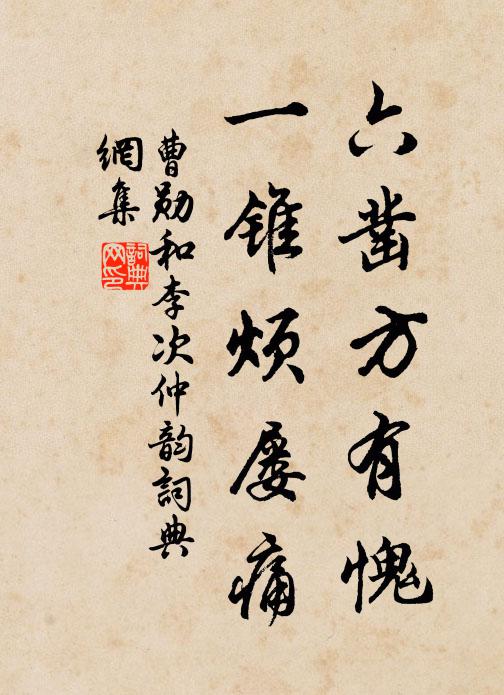 六凿方有愧
一锥烦屡痛
曹勋和李次仲韵詞典
網集
詞典网印